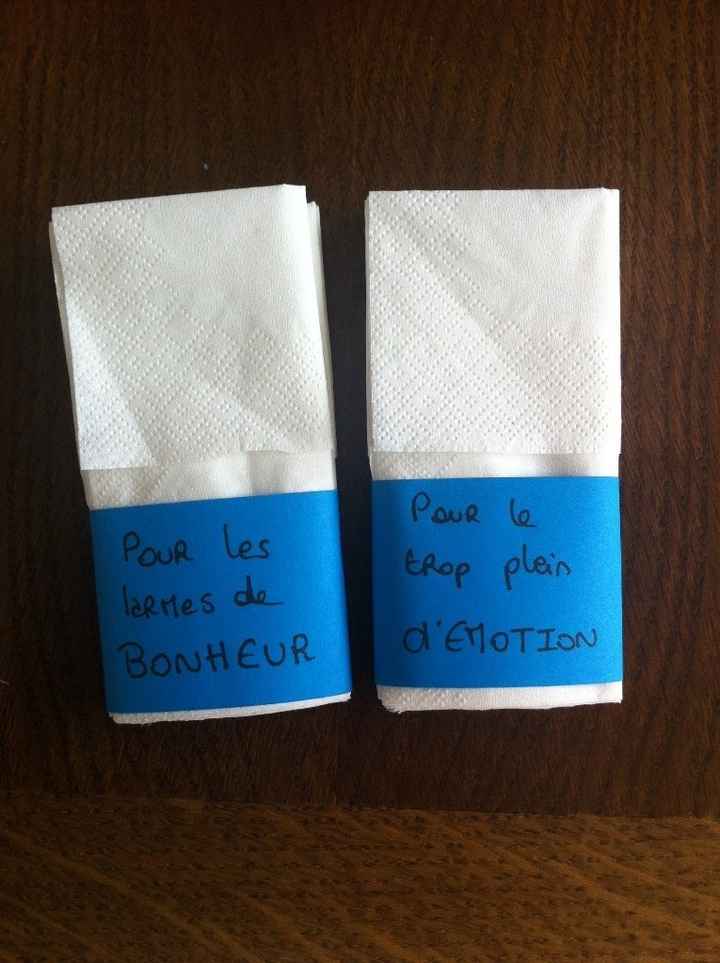 Pour les
larmes de
BONHEUR
Pour le
trop plein
d'EMOTION